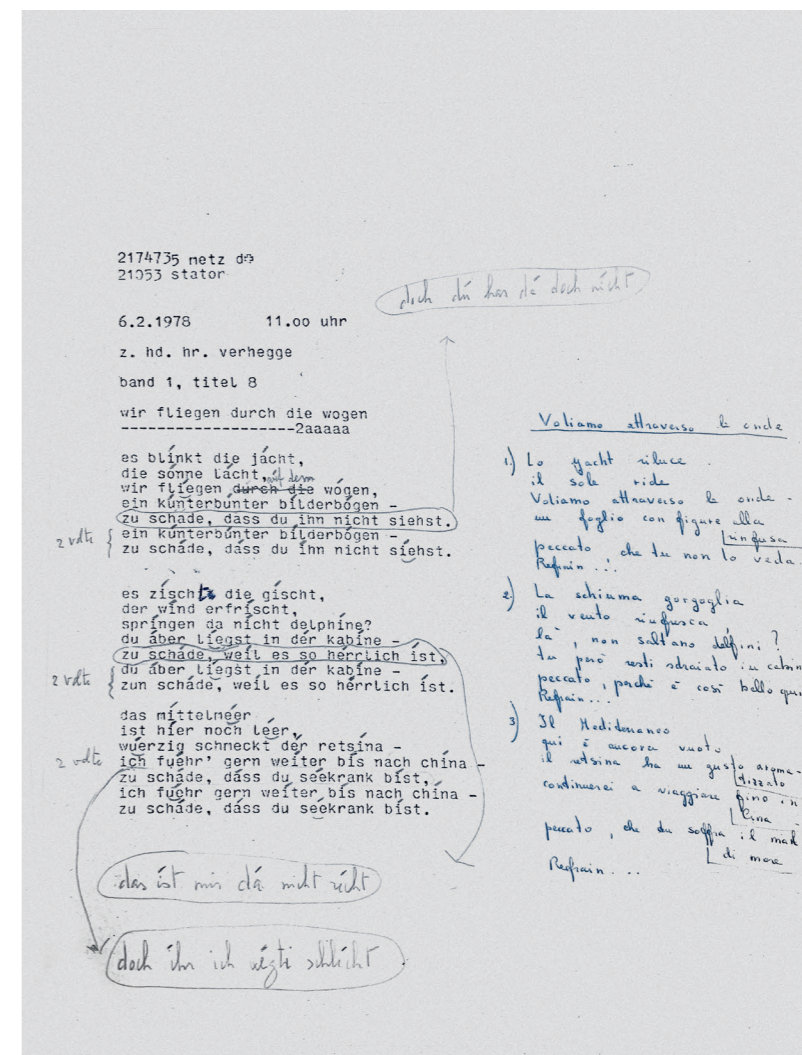 2174735 netz d
21053 stator
dich du
6.2.1978 11.oo uhr
z. hd. hr. verhegge
band 1, titel 8
wir fliegen durch die wogen
------------------2aaaaa
es blinkt die jacht,
die sonne lacht, auf dem
wir fliegen durch die wogen,
ein kunterbunter bilderbogen -
zu schade, dass du ihn nicht siehst.
2 volte { ein kunterbunter bilderbogen -
zu schade, dass du ihn nicht siehst.
es zischt die gischt,
der wind erfrischt,
springen da nicht delphine?
du aber liegst in der kabine -
zu schade, weil es so herrlich ist,
2 volte { du aber liegst in der kabine -
zun schade, weil es so herrlich ist.
das mittelmeer
ist hier noch leer,
wuerzig schmeckt der retsina -
2 volte ich fuehr' gern weiter bis nach china -
zu schade, dass du seekrank bist,
ich fuehr gern weiter bis nach china -
zu schade, dass du seekrank bist.
das ist mir dá nicht
doch ich schlicht
Voliamo attraverso le onde
1.) Lo yacht riluce
il sole ride
Voliamo attraverso le onde -
un foglio con figure alla
rinfusa
peccato, che tu non lo veda.
Refrain...
2.) La schiuma gorgoglia
il vento rinfresca,
la', non saltano delfini?
tu però resti sdraiato in cabin
peccato, perché è così bello qui
Refrain...
3) Il Mediterraneo
qui è ancora vuoto
il retsina ha un gusto aroma-
tizzato
continuerei a viaggiare fino in
Cina -
peccato, che du soffra il mal
di mare
Refrain...